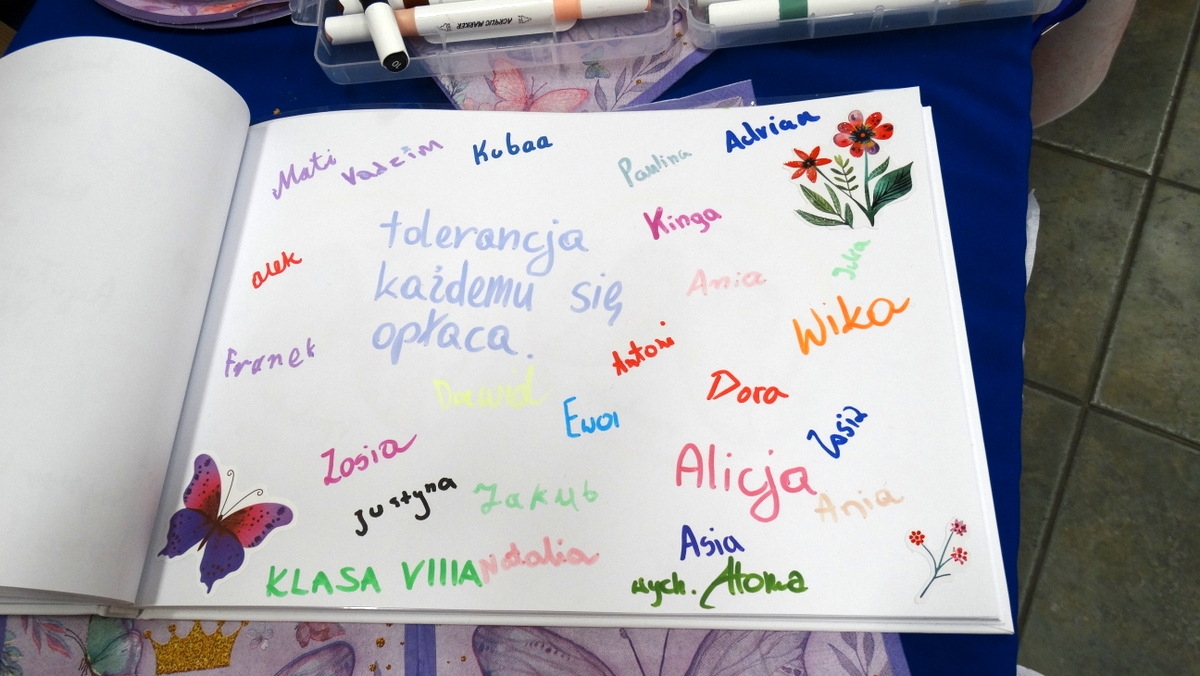 ACRYLIC MARKER
10
Mati
Vadzim
Kubaa
Paulina
Adrian
tolerancja
każdemu się
opłaca.
Kinga
olek
Ania
Julka
Wika
Franek
Antoni
Dawid
Ewa
Dora
Zosia
Zosia
Alicja
Justyna
Jakub
Ania
Asia
KLASA VIIIA
Natalia
wych.